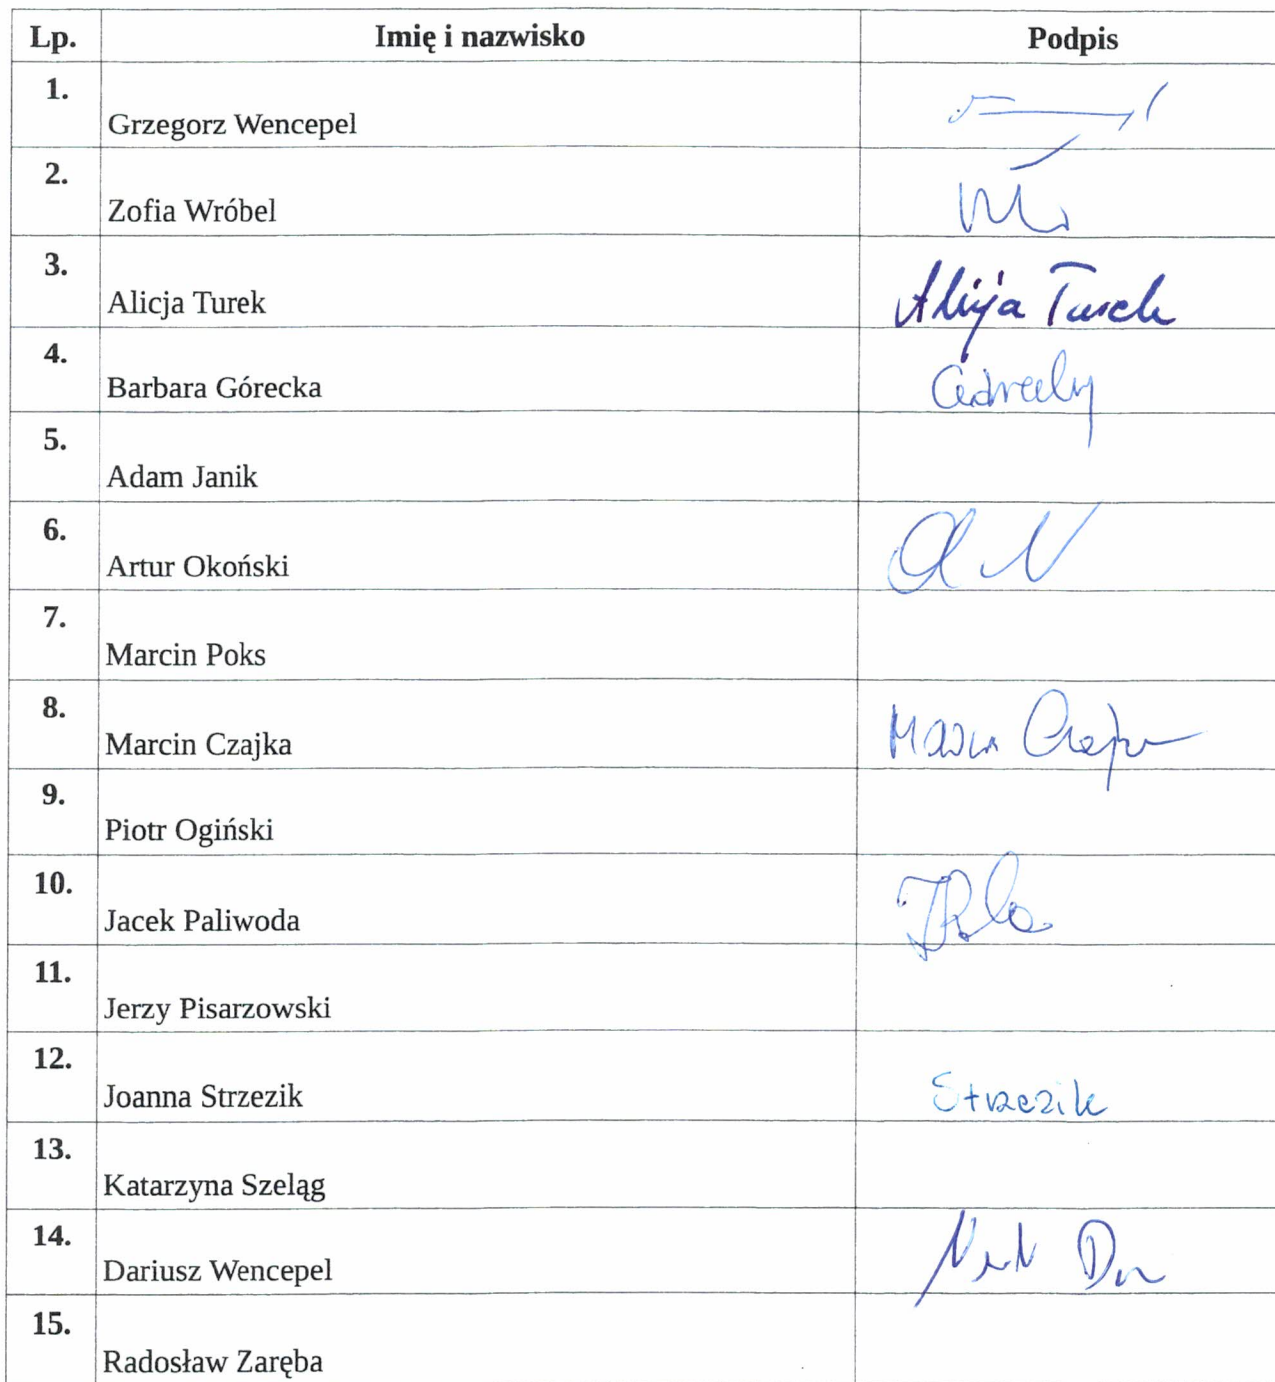 Lp. Imię i nazwisko Podpis
1. Grzegorz Wencepel
2. Zofia Wróbel
3. Alicja Turek Alicja Turek
4. Barbara Górecka
5. Adam Janik
6. Artur Okoński
7. Marcin Poks
8. Marcin Czajka Marcin Czajka
9. Piotr Ogiński
10. Jacek Paliwoda
11. Jerzy Pisarzowski
12. Joanna Strzezik Strzezik
13. Katarzyna Szeląg
14. Dariusz Wencepel
15. Radosław Zaręba